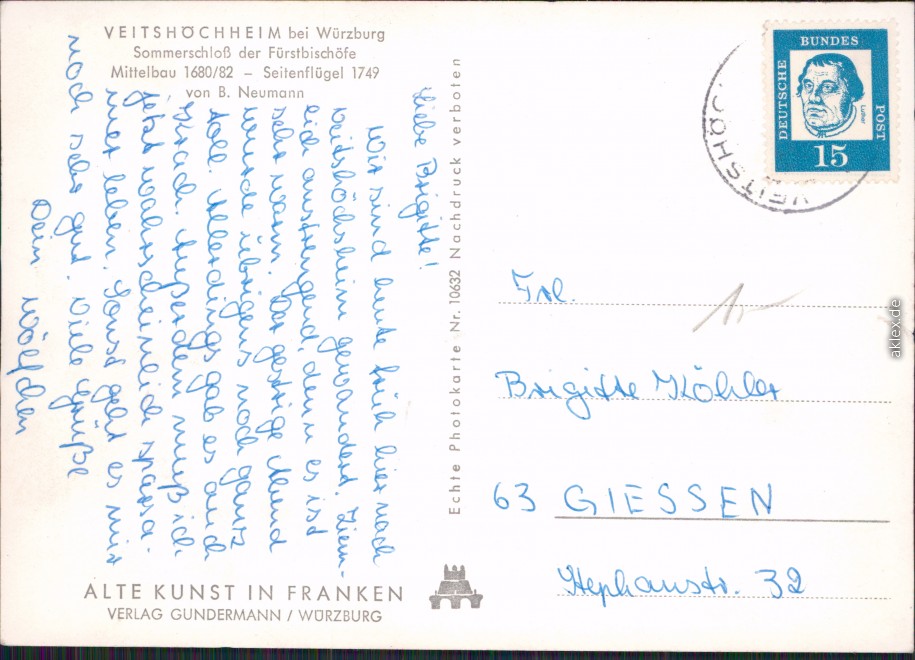 VEITSHÖCHHEIM bei Würzburg
Sommerschloß der Fürstbischöfe
Mittelbau 1680/82 – Seitenflügel 1749
von B. Neumann
Liebe Brigitte!
Wir sind heute früh hier nach
Veitshöchheim gewandert. Ziem-
lich anstrengend, denn es ist
sehr warm. Der gestrige Abend
wurde übrigens noch ganz
toll. Allerdings gab es auch
Krach. Außerdem muß ich
jetzt wahrscheinlich sparsa-
mer leben. Sonst geht es mir
noch sehr gut. Viele Grüße
Dein Wölfchen
Echte Photokarte Nr. 10632 Nachdruck verboten
ALTE KUNST IN FRANKEN
VERLAG GUNDERMANN / WÜRZBURG
DEUTSCHE BUNDES POST
Luther
15
VEITSHÖCH
Frl.
Brigitte Köhler
63 GIESSEN
Stephanstr. 32
aklex.de